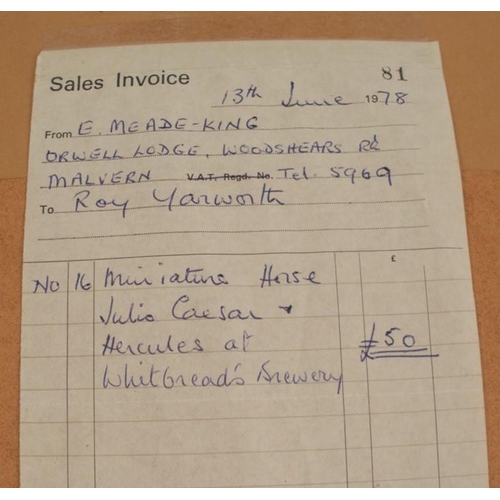 81
Sales Invoice
13th June 1978
From E. MEADE-KING
ORWELL LODGE, WOODSHEARS Rd
MALVERN V.A.T. Regd. No. Tel. 5969
To Roy Yarworth
£
No 16 Miniature Horse
Julio Caesar &
Hercules at
£50
Whitbread's Brewery